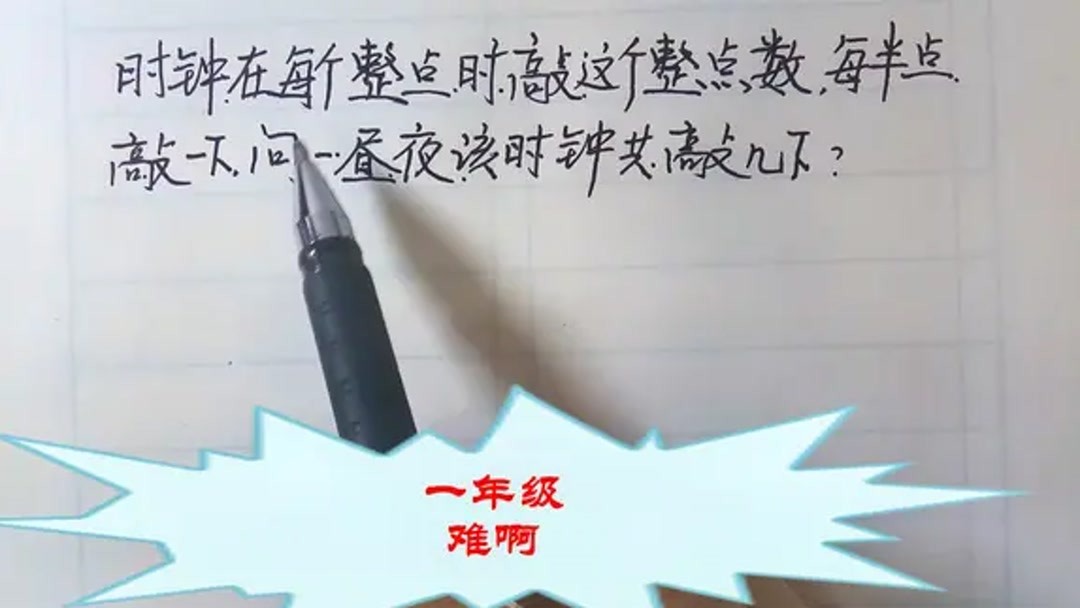 时钟在每个整点时敲这个整点数,每半点
敲一下,问一昼夜该时钟共敲几下?
一年级
难啊